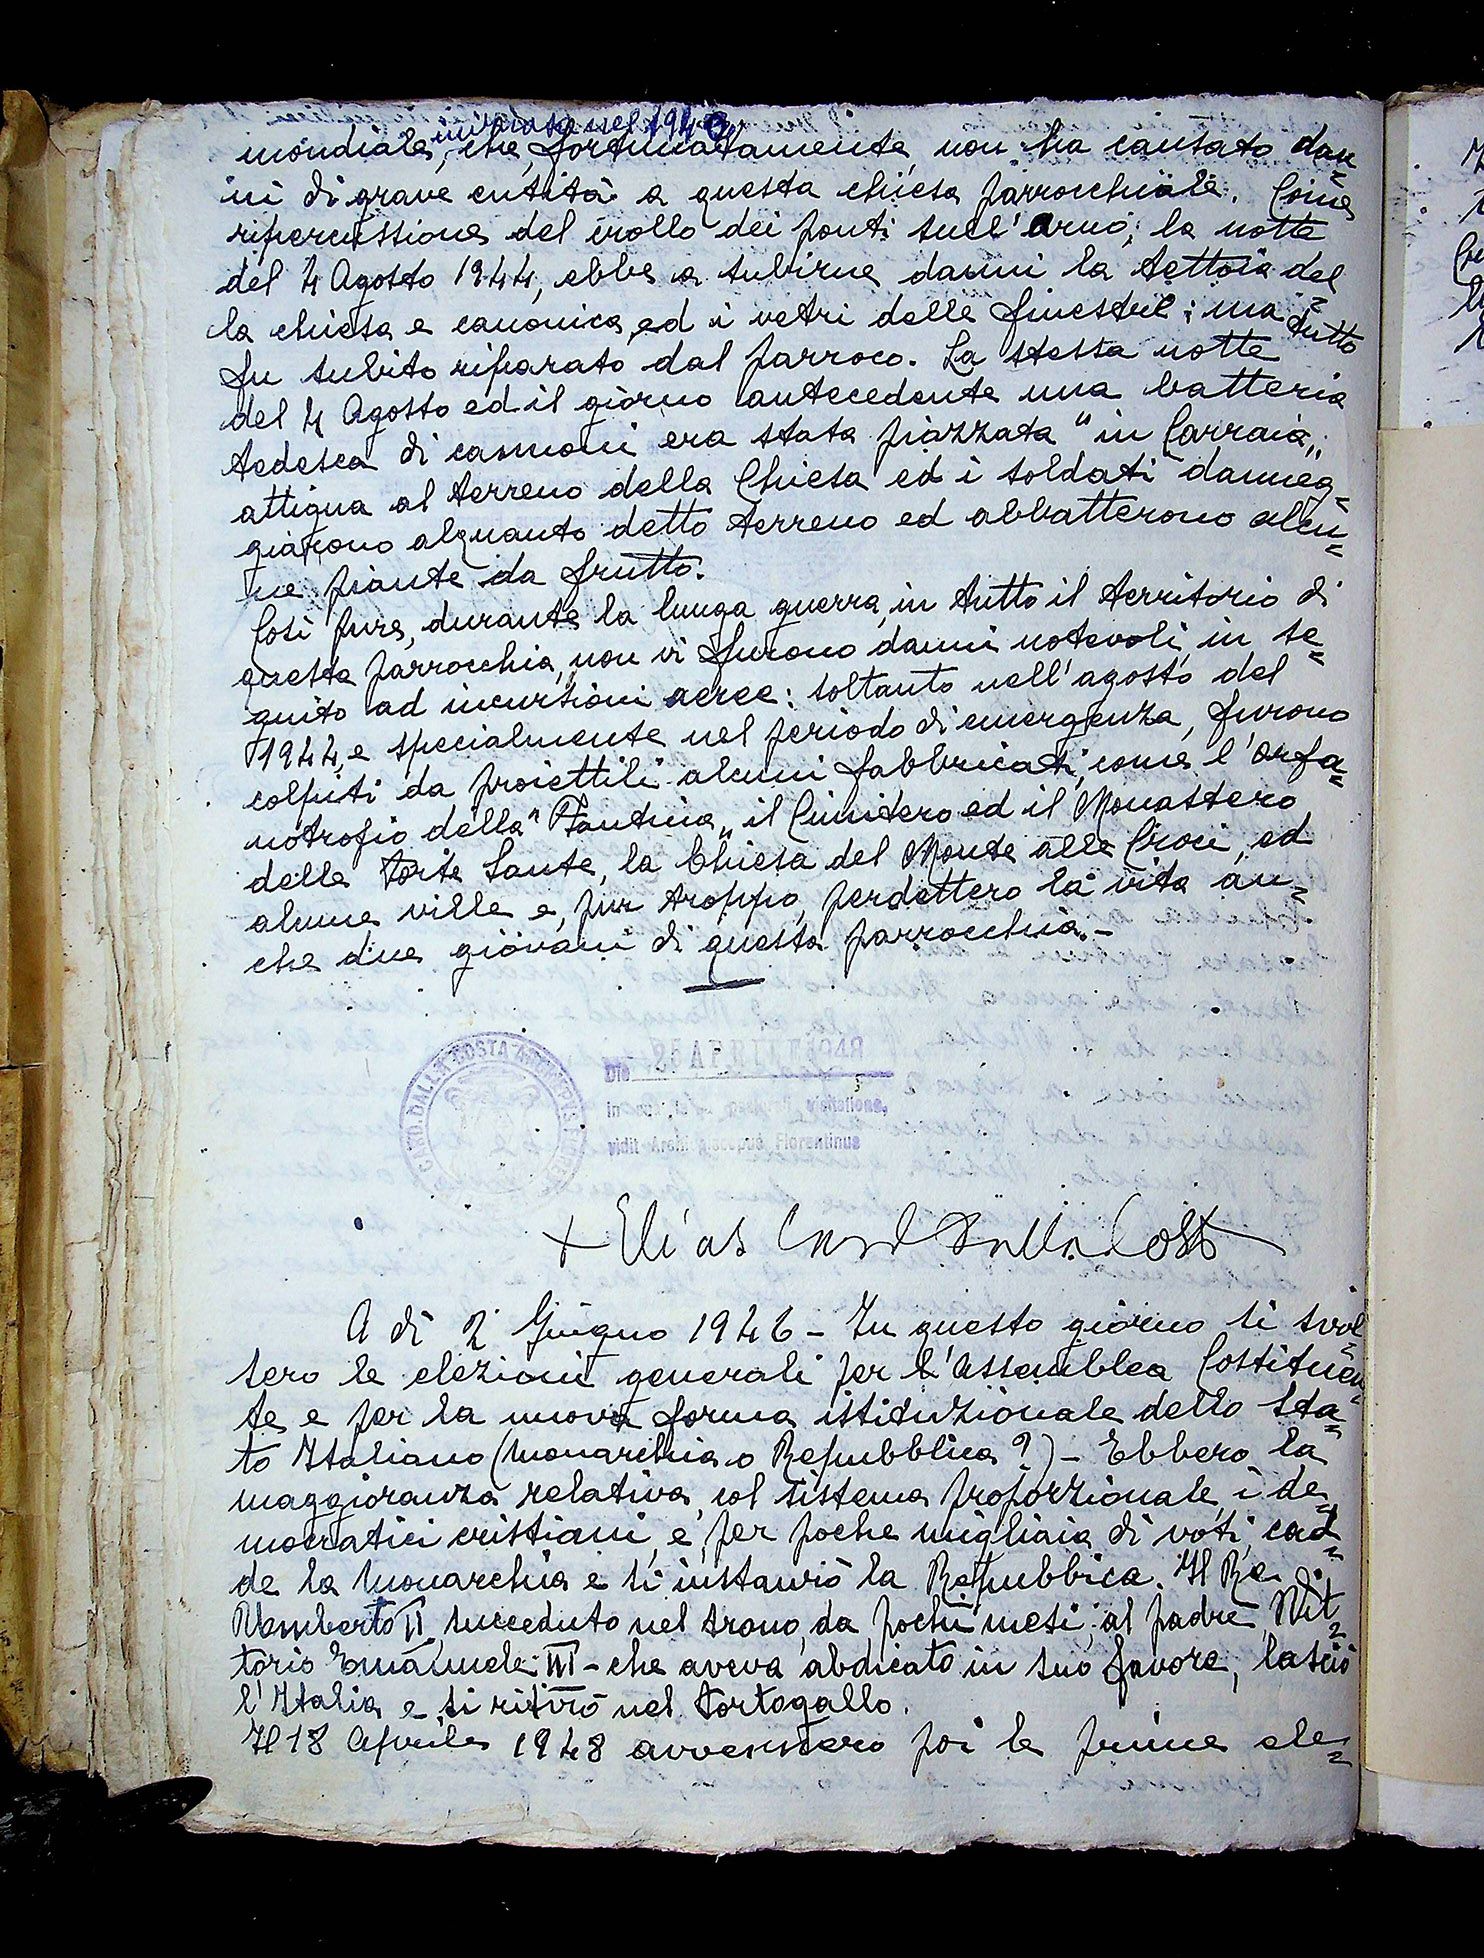 nel 194
mondiale, che, fortunatamente, non ha causato dan=
ni di grave entità a questa chiesa parrocchiale. Come
ripercussione del crollo dei ponti sull'Arno, la notte
del 4 Agosto 1944, ebbe a subirne danni la tettoia del=
la chiesa e canonica, ed i vetri delle finestre; ma tutto
fu subito riparato dal parroco. La stessa notte
del 4 Agosto ed il giorno antecedente una batteria
tedesca di cannoni era stata piazzata "in Carraia„
attigua al terreno della Chiesa ed i soldati danneg=
giarono alquanto detto terreno ed abbatterono alcu=
ne piante da frutto.
Così pure, durante la lunga guerra, in tutto il territorio di
questa parrocchia, non vi furono danni notevoli, in se=
guito ad incursioni aeree: soltanto nell'agosto del
1944, e specialmente nel periodo di emergenza, furono
colpiti da proiettili alcuni fabbricati, come l'orfa=
notrofio della "Fantina„ il Cimitero ed il Monastero
delle Porte Sante, la Chiesa del Monte alle Croci, ed
alcune ville e, pur troppo, perdettero la vita an=
che due giovani di questa parrocchia.-
CARD. DALLA COSTA
Die 25 APRILE 1948
visitatione,
vidit Archiepiscopus Florentinus
+ Elias Card Dalla Costa
A dì 2 Giugno 1946 - In questo giorno si svol=
sero le elezioni generali per l'Assemblea Costituen=
te e per la nuova forma istituzionale dello Sta=
to Italiano (Monarchia o Repubblica?) - Ebbero la
maggioranza relativa, col sistema proporzionale, i de=
mocratici cristiani, e, per poche migliaia di voti, cad=
de la Monarchia e si instaurò la Repubblica. Il Re
Umberto II, succeduto nel trono, da pochi mesi, al padre Vit=
torio Emanuele III - che aveva abdicato in suo favore, lasciò
l'Italia e si ritirò nel Portogallo.
Il 18 Aprile 1948 avvennero poi le prime ele=